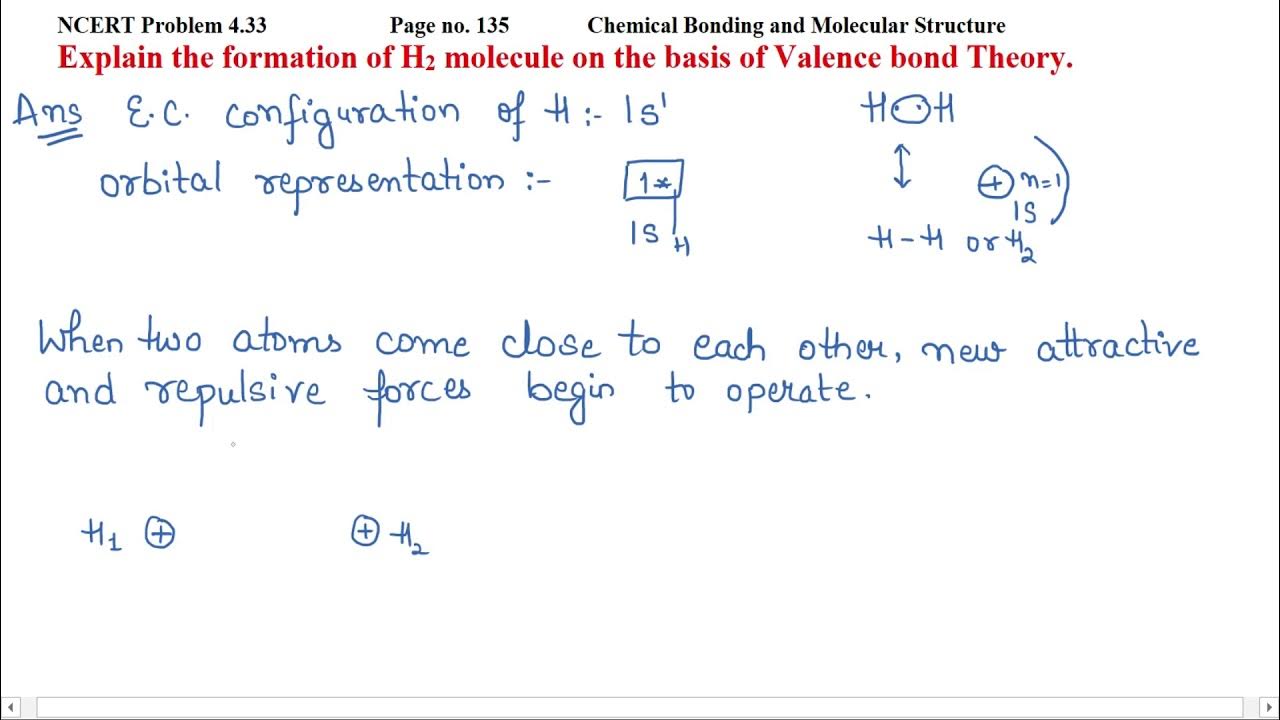 NCERT Problem 4.33 Page no. 135 Chemical Bonding and Molecular Structure
Explain the formation of H₂ molecule on the basis of Valence bond Theory.
Ans E.C. configuration of H:- 1s¹ H:H
orbital representation :- 1 + n=1
1S 1S
H H-H or H₂
When two atoms come close to each other, new attractive
and repulsive forces begin to operate.
H₁ + + H₂